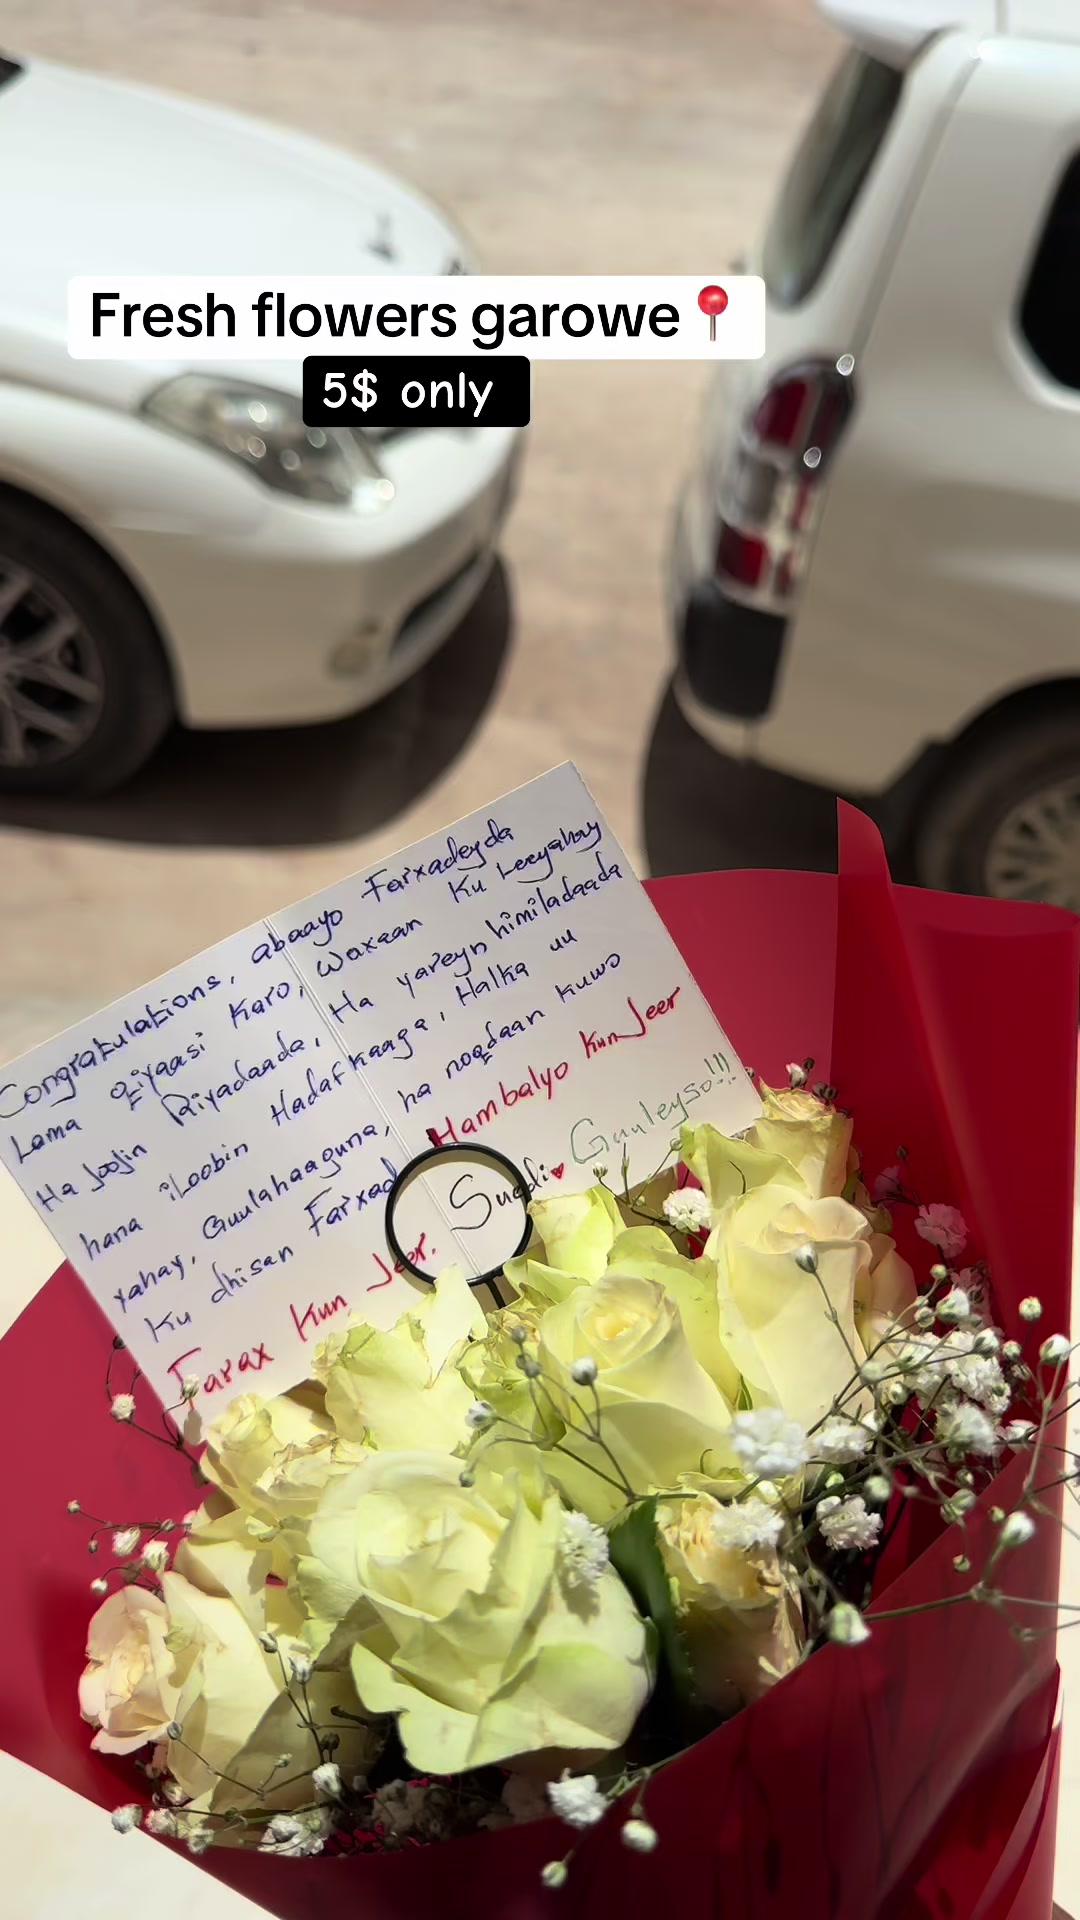 Fresh flowers garowe📍
5$ only
Congratulations, abaayo Farxadeyda
Lama qiyaasi Karo, Waxaan Ku Leeyahay
Ha Joojin Riyadaada, Ha yareyn himiladaada
hana iloobin Hadafkaaga, Halka uu
yahay, Guulahaaguna, ha noqdaan kuwo
Ku dhisan Farxad Hambalyo Kun Jeer
Farax Kun Jeer. Suedi♥ Guuleyso!!!